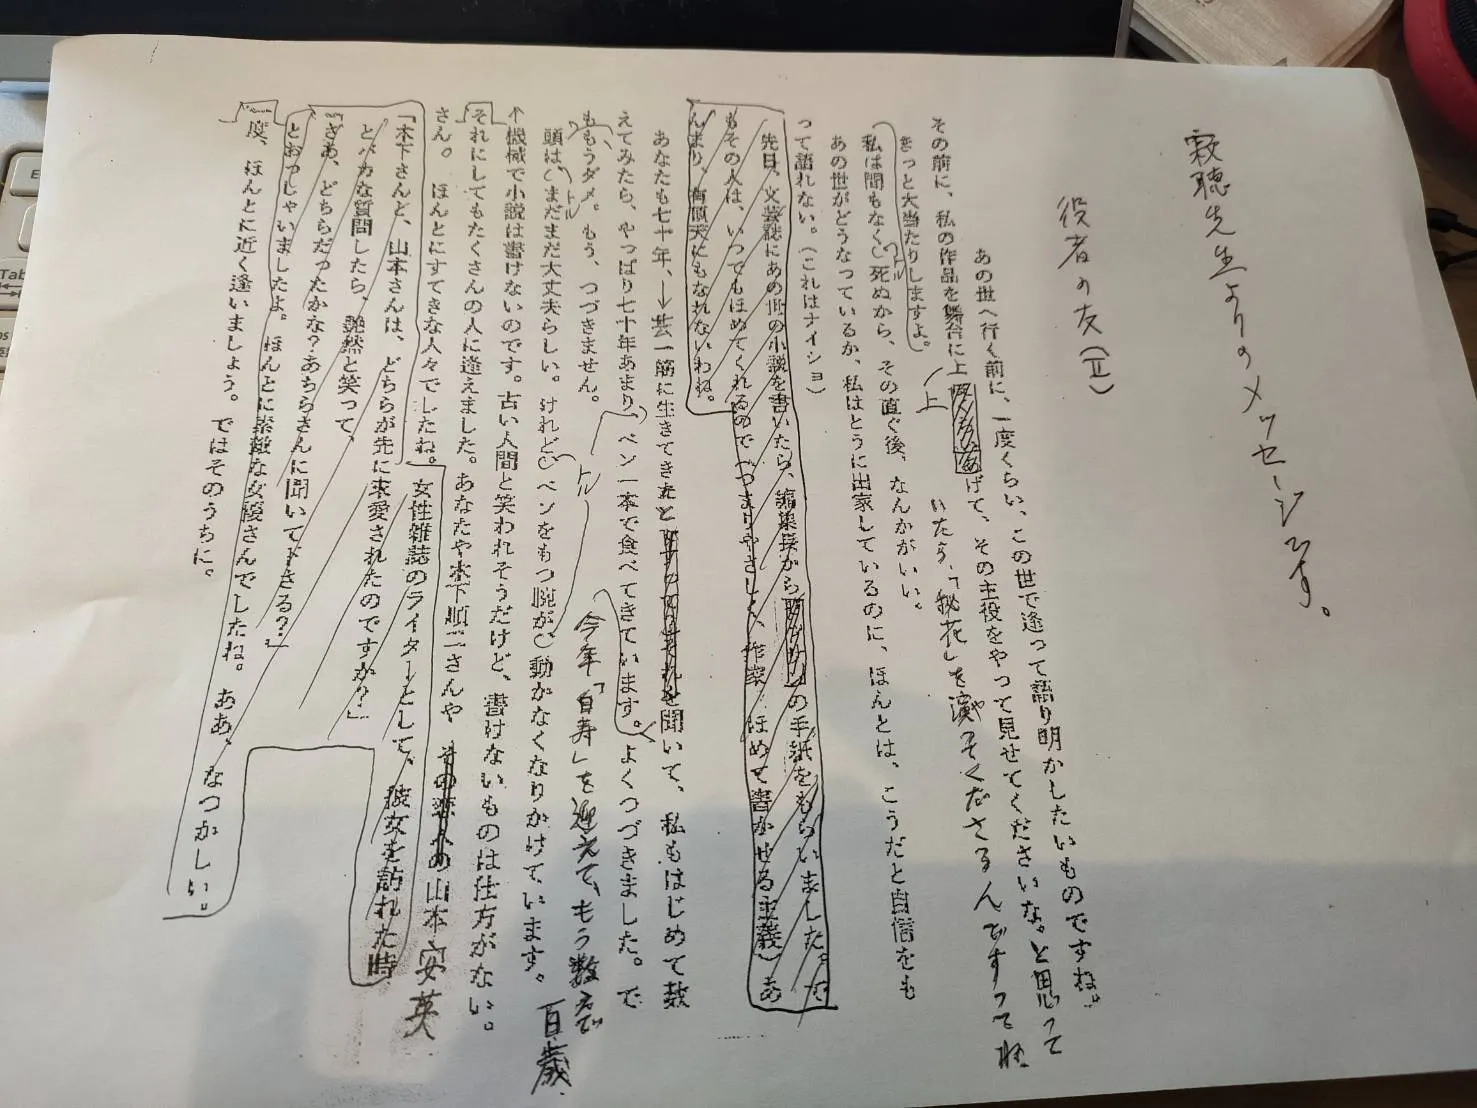 寂聴先生よりのメッセージです。
役者の友(Ⅱ)
あの世へ行く前に、一度くらい、この世で逢って語り明かしたいものですね。
その前に、私の作品を舞台に上げて、その主役をやって見せてくださいな。と思って
上
いたら、「秘花」を演ってくださるんですって
や
きっと大当たりしますよ。
私は間もなく死ぬから、その直ぐ後、なんかがいい。
トル
あの世がどうなっているか、私はとうに出家しているのに、ほんとは、こうだと自信をも
って語れない。(これはナイショ)
先日、文芸誌にあの世の小説を書いたら、編集長からの手紙をもらいました。で
もその人は、いつでもほめてくれるのでつまりやさしく、作家 ほめて書かせる主義)あ
んまり、有頂天にもなれないわね。
あなたも七十年、芸一筋に生きてきたと聞いて、私もはじめて数
えてみたら、やっぱり七十年あまり、ペン一本で食べてきています。よくつづきました。で
ももうダメ。もう、つづきません。
今年「白寿」を迎えて、もう数えで
百歳
頭は、まだまだ大丈夫らしい。けれどペンをもつ腕が動かなくなりかけています。
トル
トル
機械で小説は書けないのです。古い人間と笑われそうだけど、書けないものは仕方がない。
それにしてもたくさんの人に逢えました。あなたや木下順二さんや山本安英
さん。ほんとにすてきな人々でしたね。女性雑誌のライターとして、彼女を訪れた時
「木下さんと、山本さんは、どちらが先に求愛されたのですか?」
とバカな質問したら、艶然と笑って、
「さあ、どちらだったかな?あちらさんに聞いて下さる?」
とおっしゃいましたよ。ほんとに素敵な女優さんでしたね。ああ、なつかしい。
一度、ほんとに近く逢いましょう。ではそのうちに。